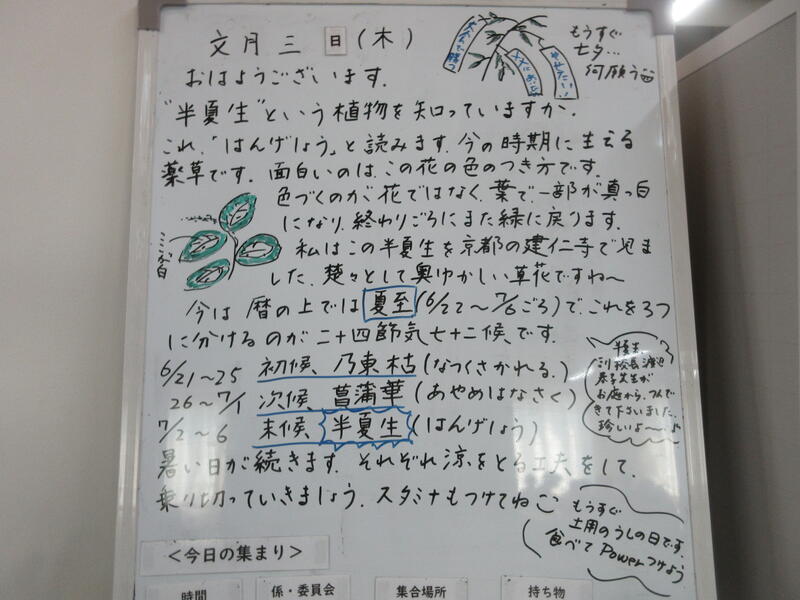 文月三日(木)
もうすぐ
七夕…
何願う
おはようございます。
"半夏生"という植物を知っていますか。
これ、「はんげしょう」と読みます。今の時期に生える
薬草です。面白いのは、この花の色のつき方です。
色づくのが花ではなく、葉で、一部が真っ白
になり、終わりごろにまた緑に戻ります。
ここが白
私はこの半夏生を京都の建仁寺で見ま
した。楚々として奥ゆかしい草花ですね〜
今は暦の上では夏至(6/22〜7/6ごろ)で、これを3つ
に分けるのが二十四節気七十二候、です。
6/21〜25 初候、乃東枯(なつくさかれる。)
26〜7/1 次候、菖蒲華(あやめはなさく)
7/2〜6 末候、半夏生(はんげしょう)
お庭から、つんで
きて下さいました。
珍しいよ〜
暑い日が続きます。それぞれ涼をとる工夫をして、
乗り切っていきましょう。スタミナもつけてね
もうすぐ
土用のうしの日です。
食べてPowerつけよう
<今日の集まり>
時間 係・委員会 集合場所 持ち物